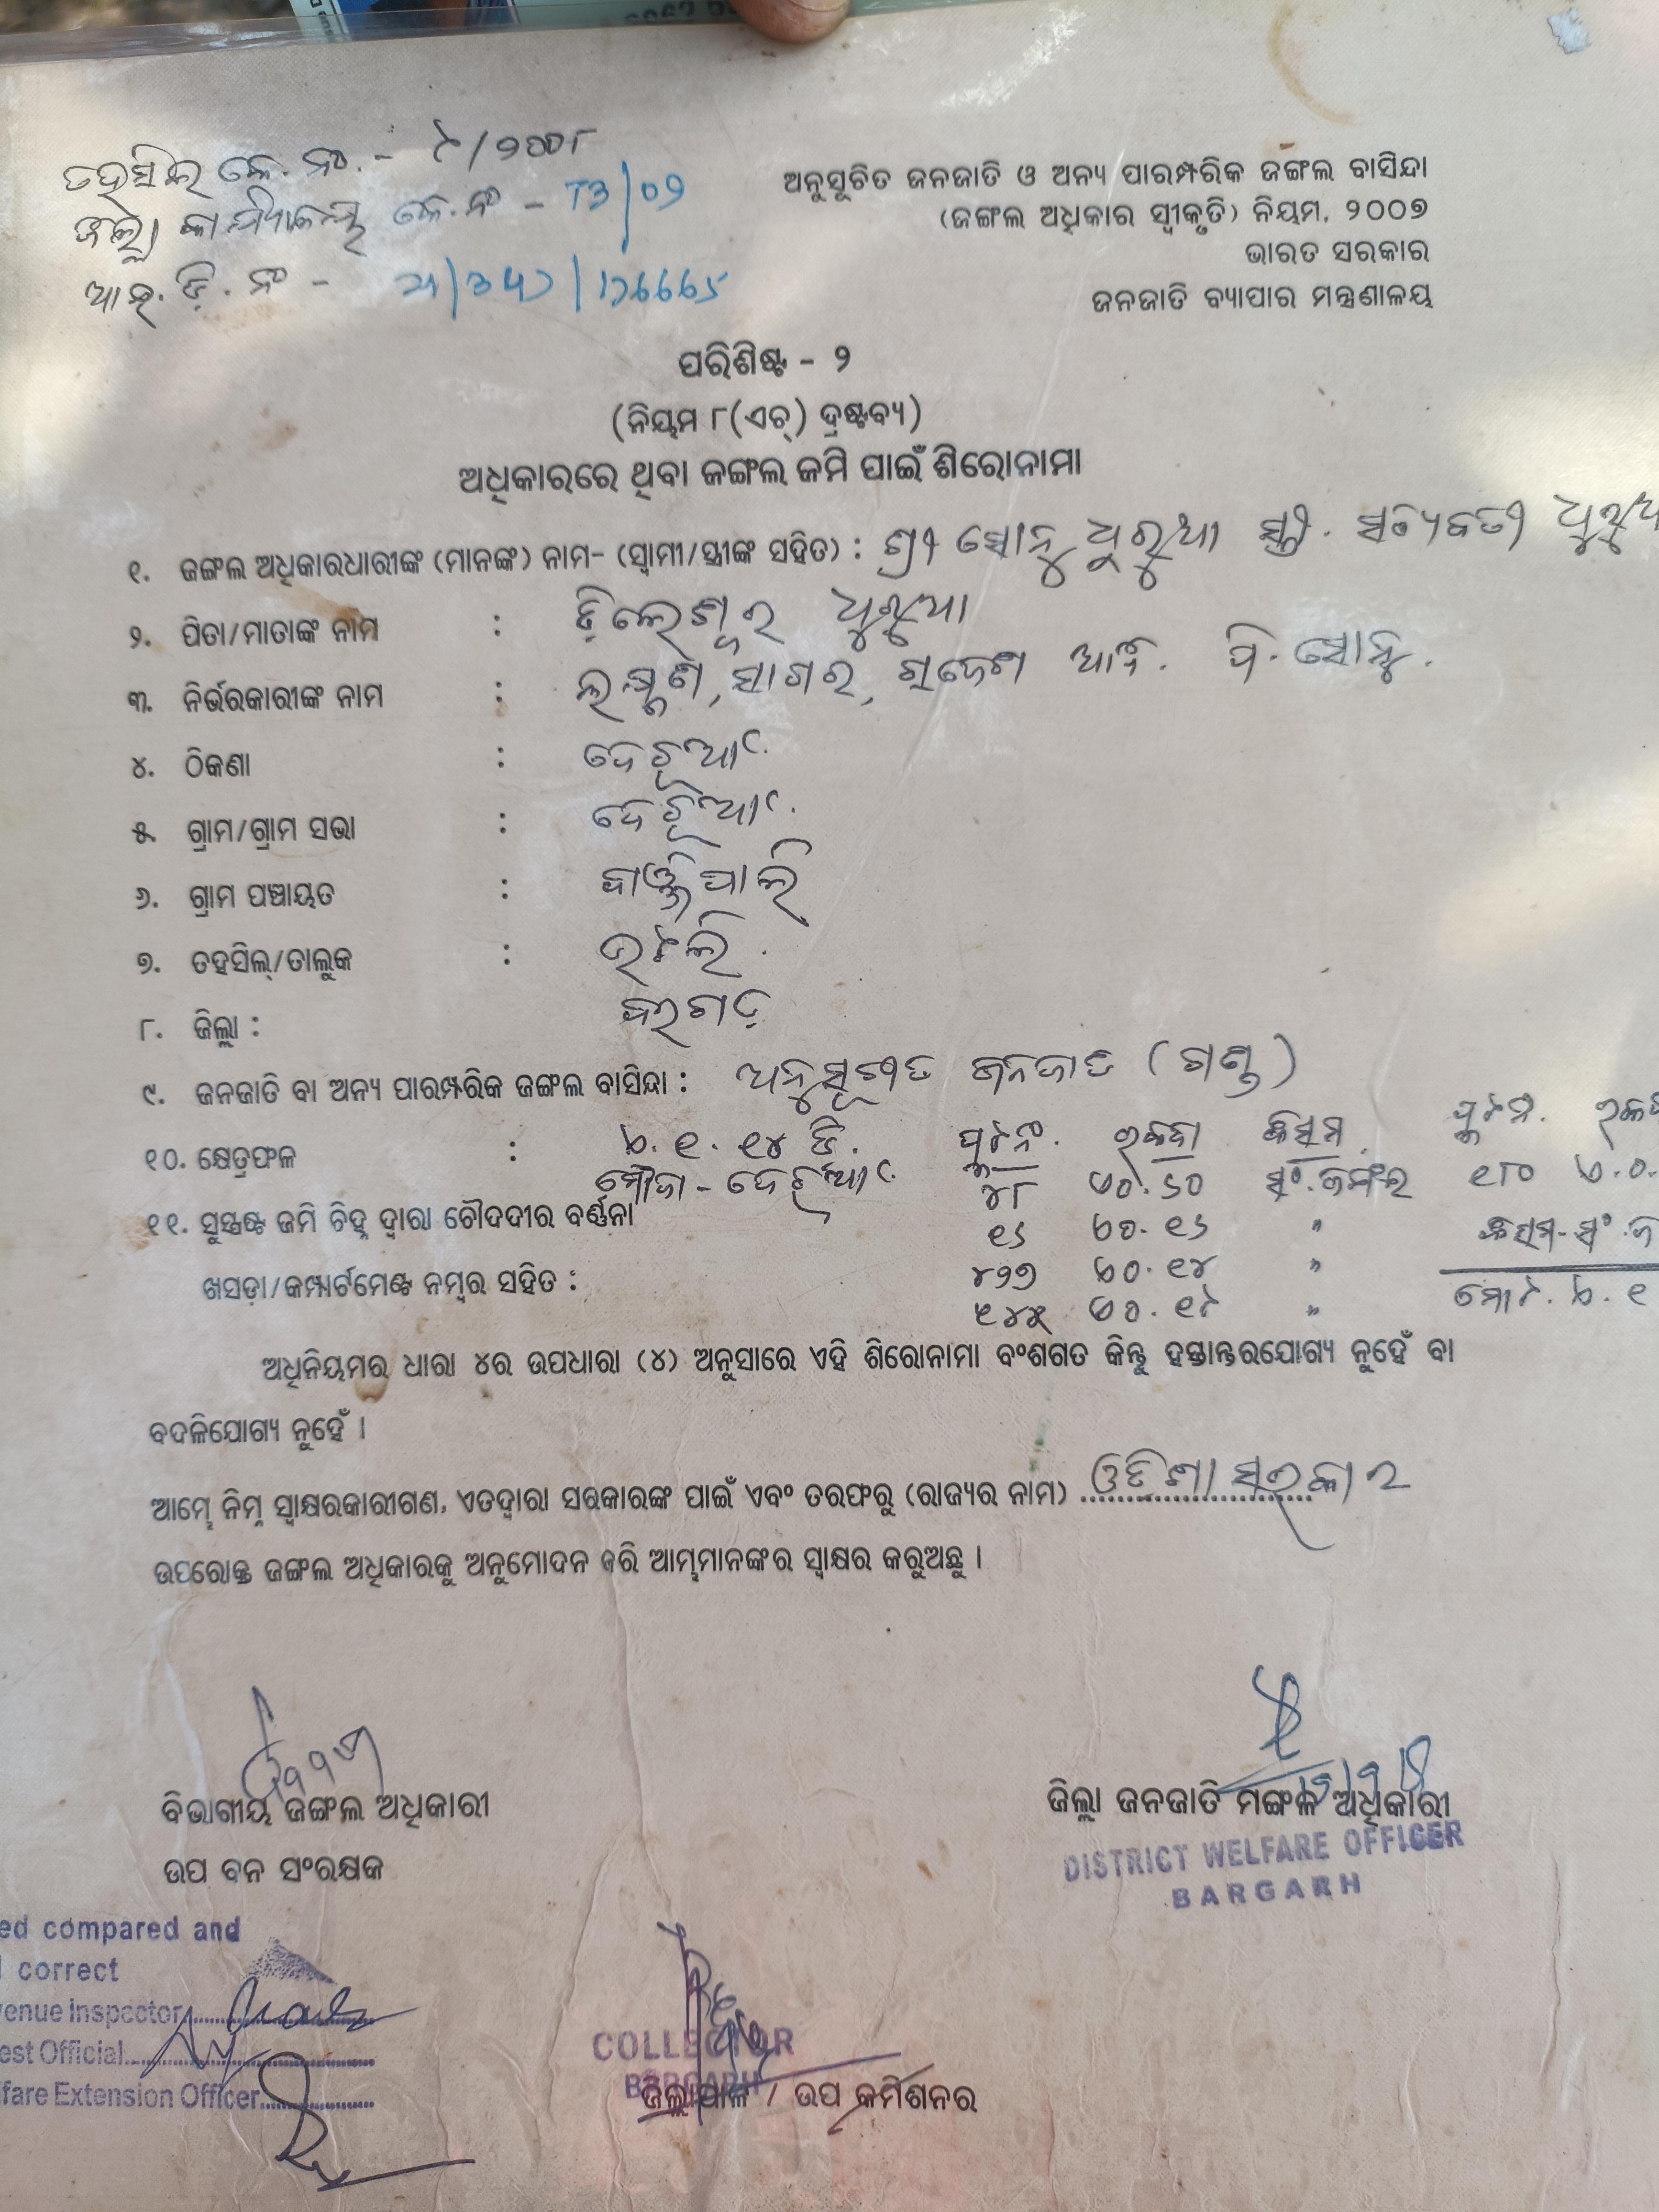 ତହସିଲ କେ. ନଂ. - ୫/୨୦୦୮
ଜିଲ୍ଲା କାର୍ଯ୍ୟାଳୟ କେ.ନଂ - T3/09
ଆଇ. ଡ଼ି. ନଂ -
ଅନୁସୂଚିତ ଜନଜାତି ଓ ଅନ୍ୟ ପାରମ୍ପରିକ ଜଙ୍ଗଲ ବାସିନ୍ଦା
(ଜଙ୍ଗଲ ଅଧିକାର ସ୍ୱୀକୃତି) ନିୟମ, ୨୦୦୭
ଭାରତ ସରକାର
ଜନଜାତି ବ୍ୟାପାର ମନ୍ତ୍ରଣାଳୟ
ପରିଶିଷ୍ଟ - ୨
(ନିୟମ ୮(ଏଚ୍) ଦ୍ରଷ୍ଟବ୍ୟ)
ଅଧିକାରରେ ଥିବା ଜଙ୍ଗଲ ଜମି ପାଇଁ ଶିରୋନାମା
୧. ଜଙ୍ଗଲ ଅଧିକାରଧାରୀଙ୍କ (ମାନଙ୍କ) ନାମ- (ସ୍ୱାମୀ/ସ୍ତ୍ରୀଙ୍କ ସହିତ) : ଶ୍ରୀ ସୋନୁ ଧୁରୁଆ ସ୍ତ୍ରୀ. ସତ୍ୟବତୀ
୨. ପିତା/ମାତାଙ୍କ ନାମ : ଢ଼ିଲେଶ୍ୱର ଧୁରୁଆ
୩. ନିର୍ଭରକାରୀଙ୍କ ନାମ : ଲକ୍ଷ୍ମଣ, ସାଗର, ପି. ସୋନୁ.
୪. ଠିକଣା :
୫. ଗ୍ରାମ/ଗ୍ରାମ ସଭା :
୬. ଗ୍ରାମ ପଞ୍ଚାୟତ :
୭. ତହସିଲ୍/ତାଲୁକ : ଭଟଲି.
୮. ଜିଲ୍ଲା : ବରଗଡ଼
୯. ଜନଜାତି ବା ଅନ୍ୟ ପାରମ୍ପରିକ ଜଙ୍ଗଲ ବାସିନ୍ଦା : ଅନୁସୂଚୀତ ଜନଜାତି (ଗଣ୍ଡ)
୧୦. କ୍ଷେତ୍ରଫଳ : ଏ. ୧. ୧୪ ଡି. ପ୍ଲଟନଂ. ରକବା କିସମ ପ୍ଲଟନଂ.
୧୧. ସୁସ୍ପଷ୍ଟ ଜମି ଚିହ୍ନ ଦ୍ୱାରା ଚୌଦଦୀର ବର୍ଣ୍ଣନା ମୌଜା - ୪୮ ଏ୦.୬୦ ସଂ.ଜଙ୍ଗଲ ୧୮୦ ଏ.୦.
୧୬ ଏ୦.୧୬ " କିସମ-ସଂ.
ଖସଡ଼ା/କମ୍ପାର୍ଟମେଣ୍ଟ ନମ୍ବର ସହିତ : ୪୨୭ ଏ୦.୧୪ " ମୋଟ. ଏ. ୧
ଏ୦.୧୫ "
ଅଧିନିୟମର ଧାରା ୪ର ଉପଧାରା (୪) ଅନୁସାରେ ଏହି ଶିରୋନାମା ବଂଶଗତ କିନ୍ତୁ ହସ୍ତାନ୍ତରଯୋଗ୍ୟ ନୁହେଁ ବା
ବଦଳିଯୋଗ୍ୟ ନୁହେଁ ।
ଆମ୍ଭେ ନିମ୍ନ ସ୍ୱାକ୍ଷରକାରୀଗଣ, ଏତଦ୍ୱାରା ସରକାରଙ୍କ ପାଇଁ ଏବଂ ତରଫରୁ (ରାଜ୍ୟର ନାମ) ଓଡିଶା ସରକାର
ଉପରୋକ୍ତ ଜଙ୍ଗଲ ଅଧିକାରକୁ ଅନୁମୋଦନ କରି ଆମ୍ଭମାନଙ୍କର ସ୍ୱାକ୍ଷର କରୁଅଛୁ ।
ବିଭାଗୀୟ ଜଙ୍ଗଲ ଅଧିକାରୀ
ଉପ ବନ ସଂରକ୍ଷକ
ଜିଲ୍ଲା ଜନଜାତି ମଙ୍ଗଳ ଅଧିକାରୀ
DISTRICT WELFARE OFFICER
BARGARH
ed compared and
correct
venue Inspector
est Official
lfare Extension Officer
COLLECTOR
BARGARH
ଜିଲ୍ଲାପାଳ / ଉପ କମିଶନର